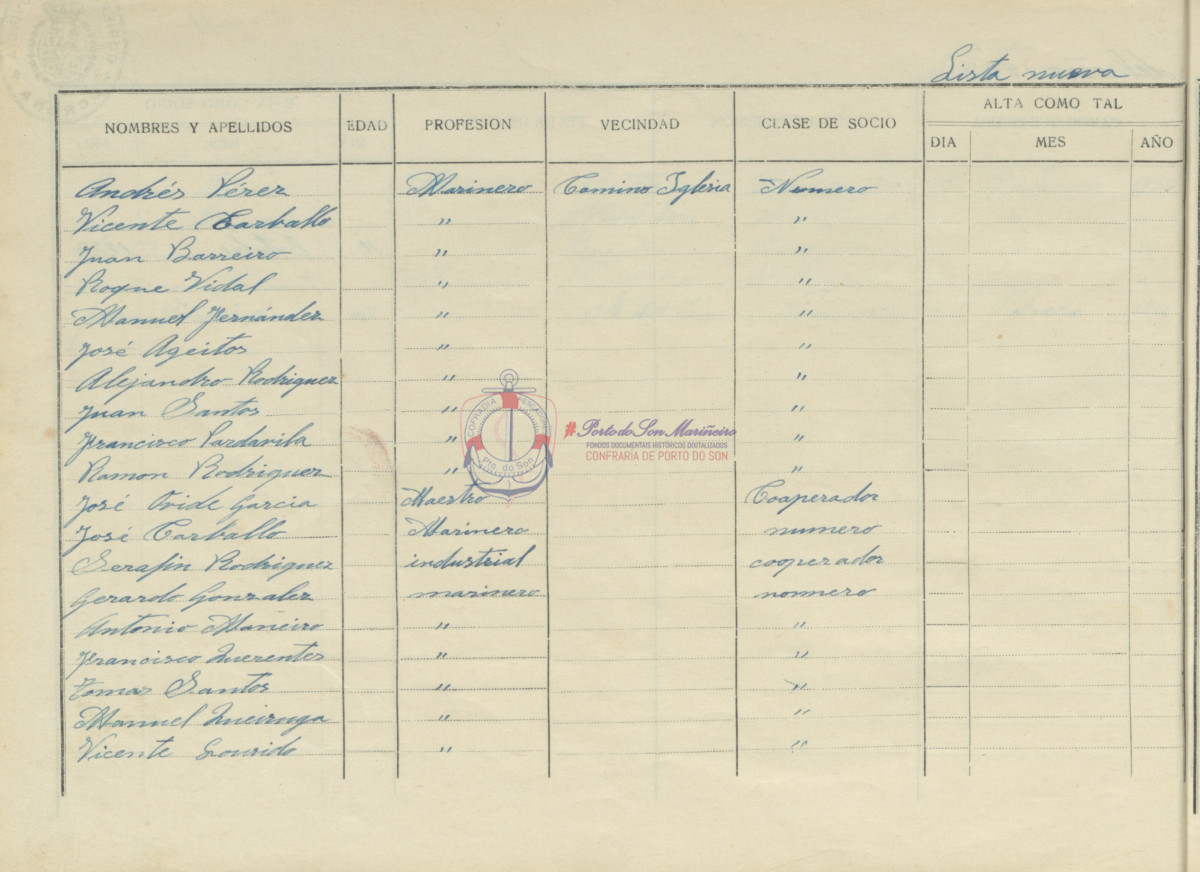 Lista nueva
NOMBRES Y APELLIDOS EDAD PROFESION VECINDAD CLASE DE SOCIO ALTA COMO TAL
DIA MES AÑO
Andrés Pérez Marinero Camino Iglesia Número
Vicente Carballo " "
Juan Barreiro " "
Roque Vidal " "
Manuel Fernández " "
José Ageitos " "
Alejandro Rodriguez " "
Juan Santos " "
Francisco Pardavila " "
Ramon Rodriguez " "
José Ovide Garcia Maestro Coaperador
José Carballo Marinero numero
Serafin Rodriguez industrial cooperador
Gerardo Gonzalez marinero nomero
Antonio Maneiro " "
Francisco Querentes " "
Tomas Santos " "
Manuel Queiruga " "
Vicente Lourido " "
COFRADÍA PESCADORES
Pto. do Son
#Porto do Son Mariñeiro
FONDOS DOCUMENTAIS HISTÓRICOS DIXITALIZADOS
CONFRARÍA DE PORTO DO SON